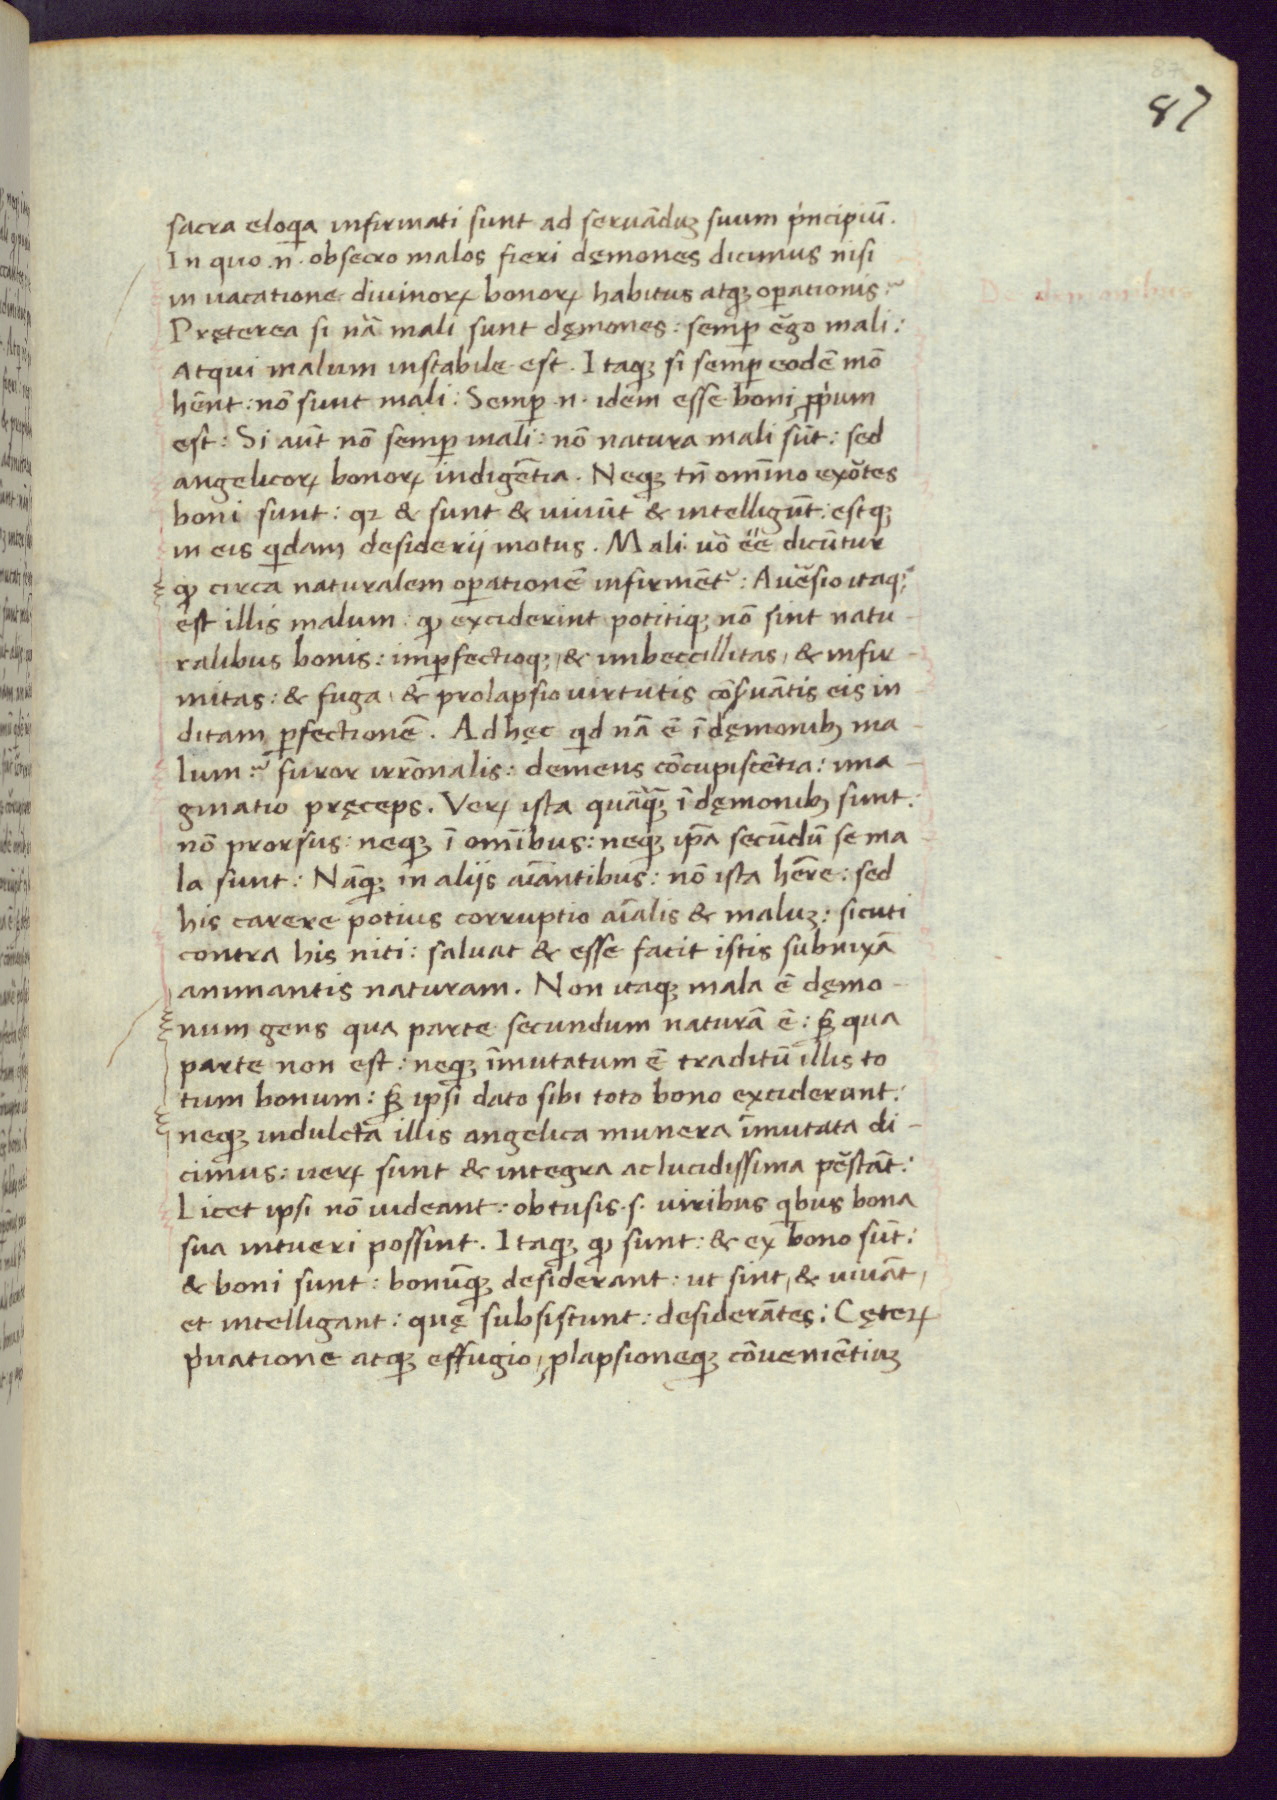 87
87
sacra eloqa infirmati sunt ad seruāduꝫ suum pncipiū.
In quo .n. obsecro malos fieri dęmones dicimus nisi
in uacatione diuinoꝝ bonoꝝ habitus atqꝫ oꝑationis?
De demonibus
Pręterea si nā mali sunt dęmones: semꝑ ego mali:
Atqui malum instabile est. Itaqꝫ si semꝑ eodē mō
hēnt: nō sunt mali: Semꝑ .n. idem esse boni ꝓpum
est: Si aūt nō semꝑ mali: nō natura mali sūt: sed
angelicoꝝ bonoꝝ indigētia. Neqꝫ tn̄ omīno exōtes
boni sunt: qꝛ & sunt & uiuūt & intelligūt: estqꝫ
in eis qdam desiderij motus. Mali uō eē dicūtur
ꝙ circa naturalem oꝑationē infirmēt᷑: Auesio itaqꝫ
est illis malum: ꝙ exciderint potitiqꝫ nō sint natu-
ralibus bonis: imꝑfectioqꝫ, & imbeccillitas, & infir-
mitas: & fuga, & prolapsio uirtutis cōsuātis eis in
ditam ꝑfectionē. Ad hęc qd nā ē ī dęmonibꝫ ma-
lum? furor irrōnalis: demens cōcupiscētia: ima-
ginatio pręceps. Veꝝ ista quāqꝫ ī dęmonibꝫ sunt:
nō prorsus: neqꝫ ī omībus: neqꝫ ipa secūdū se ma-
la sunt: Nāqꝫ in aliis aīantibus: nō ista hēre: sed
his carere potius corruptio aīalis & maluꝫ: sicuti
contra his niti: saluat & esse facit istis subnixā
animantis naturam. Non itaqꝫ mala ē dęmo-
num gens qua parte secundum naturā ē: sꝫ qua
parte non est: neqꝫ īmutatum ē traditū illis to
tum bonum: sꝫ ipsi dato sibi toto bono exciderunt:
neqꝫ indulcta illis angelica munera īmutata di-
cimus: ueꝝ sunt & integra ac lucidissima pēstāt:
Licet ipsi nō uideant: obtusis .s. uiribus qbus bona
sua intueri possint. Itaqꝫ ꝙ sunt: & ex bono sūt:
& boni sunt: bonūqꝫ desiderant: ut sint, & uiuāt,
et intelligant: quę subsistunt: desiderātes: Cęteꝝ
puatione atqꝫ effugio, ꝓlapsioneqꝫ cōueniētiuꝫ